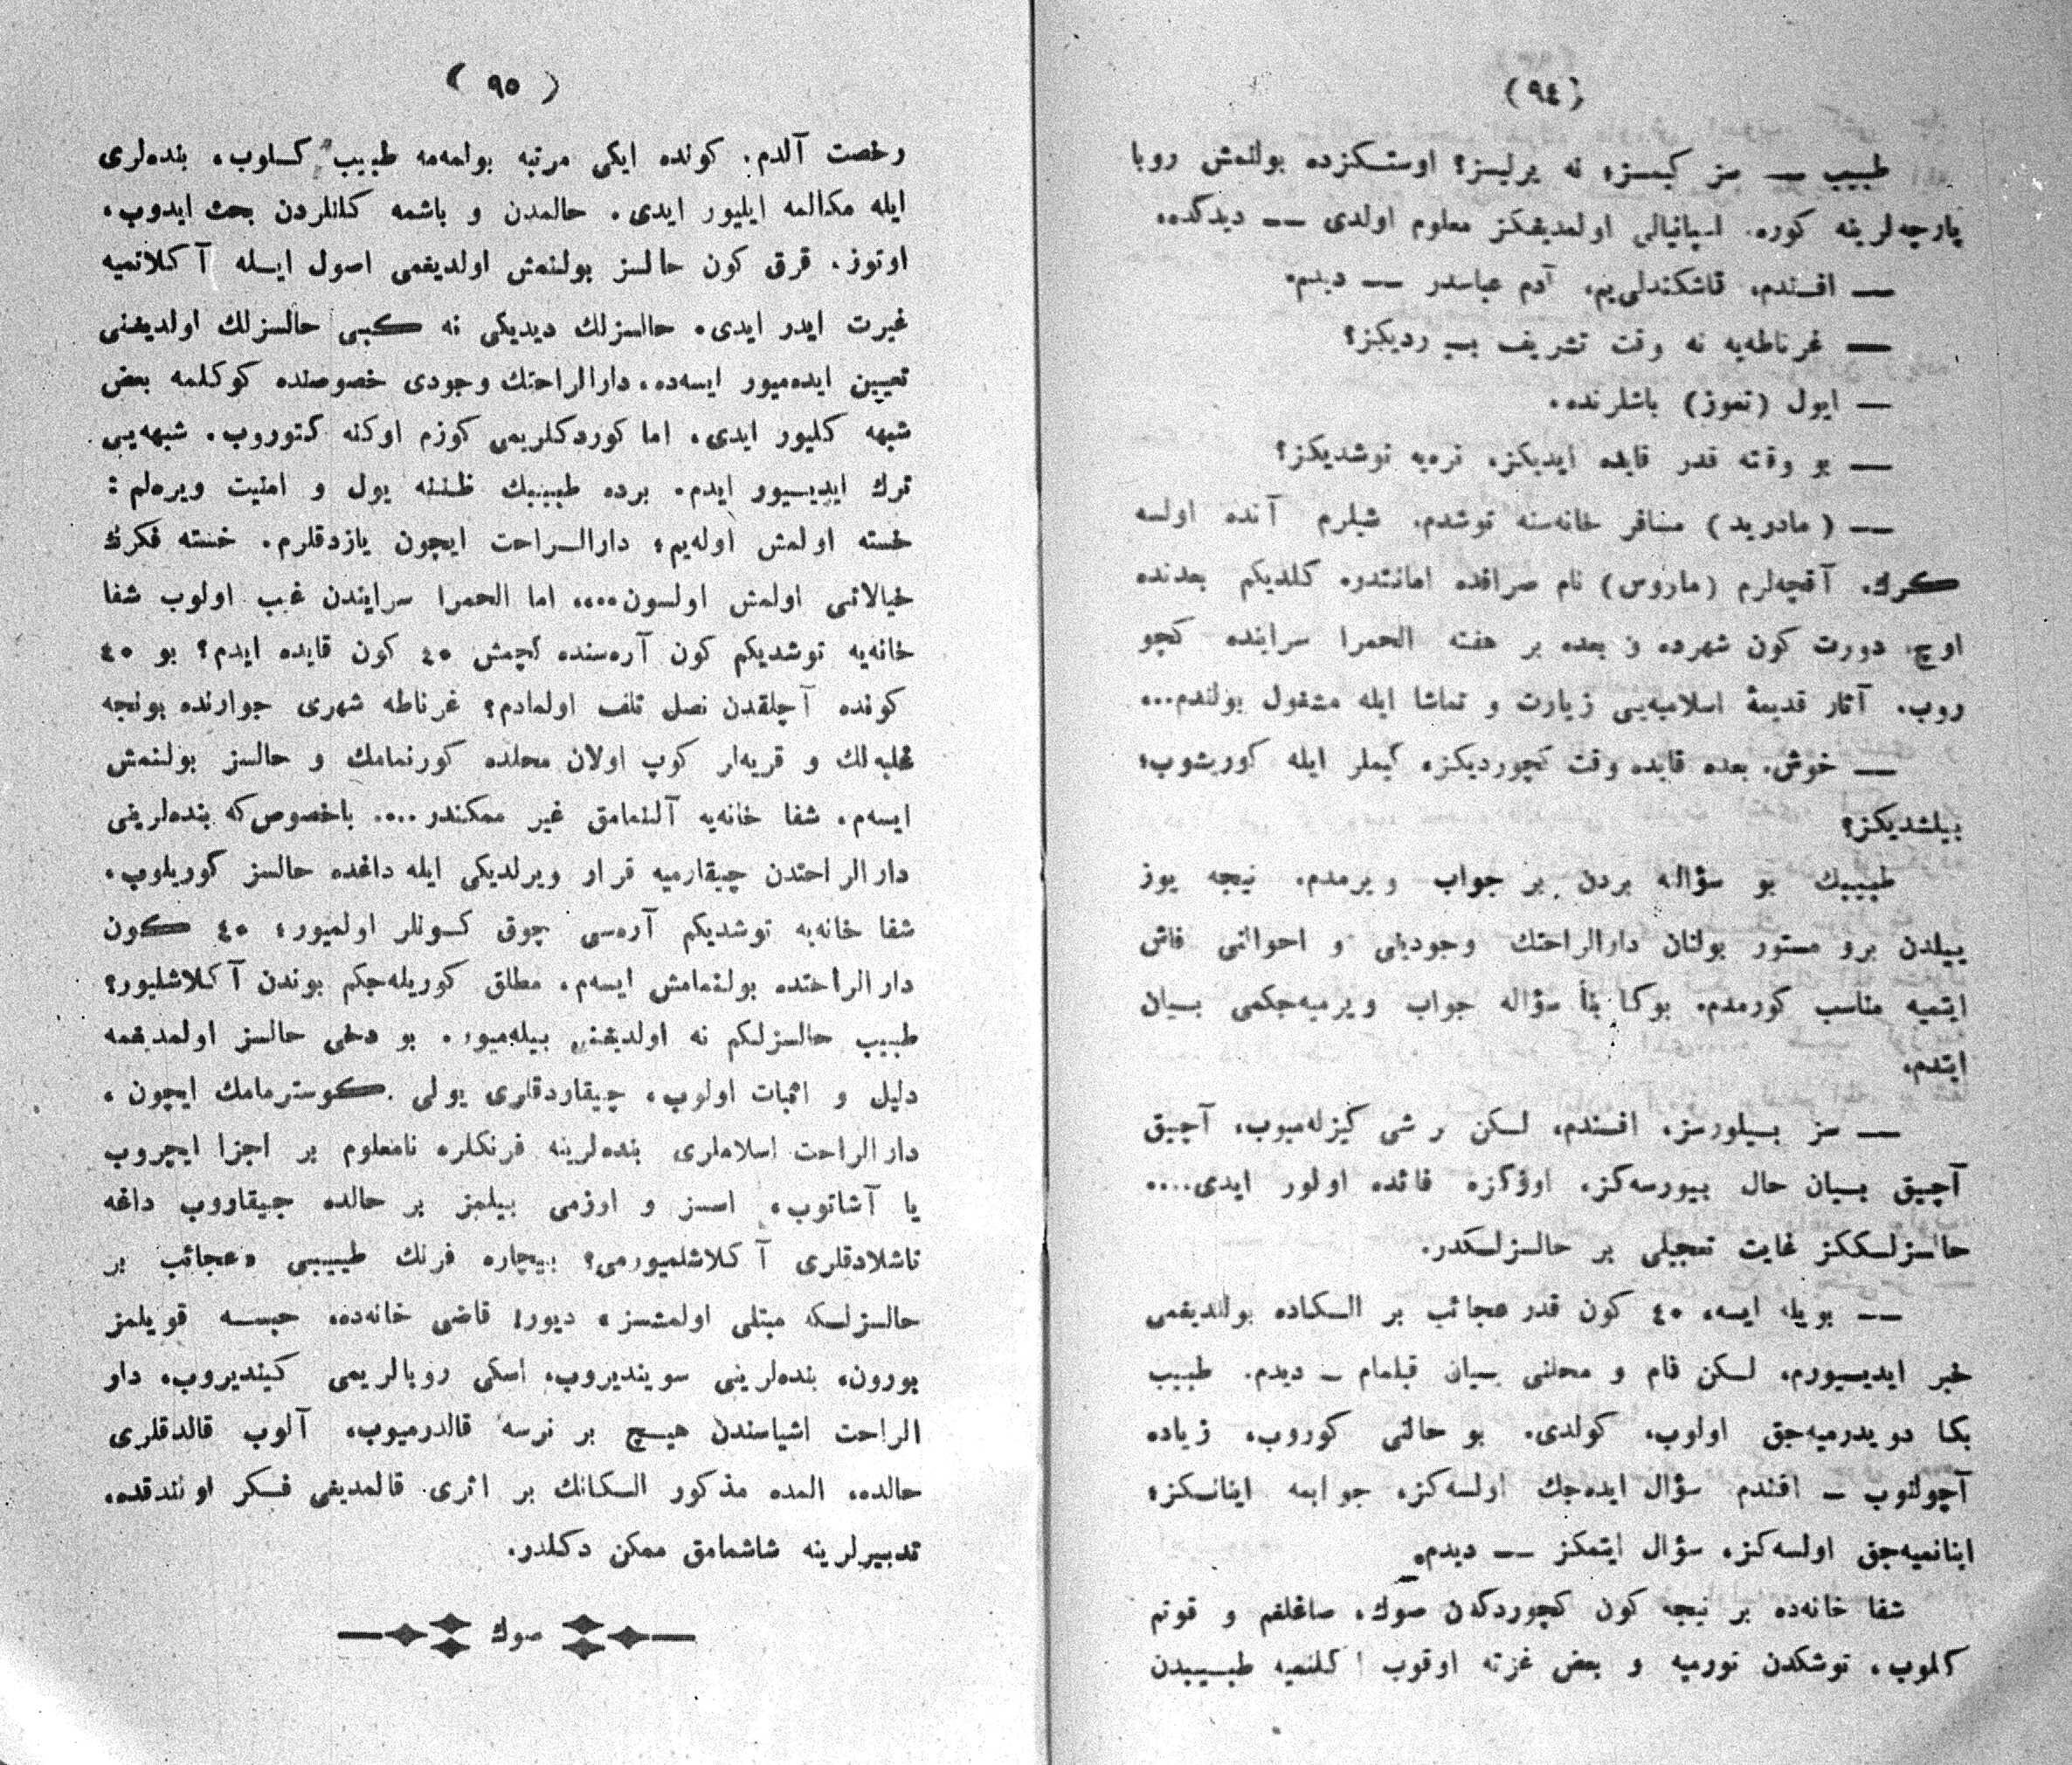 (٩٤)
طبیب — سز کیمسز؛ نه یرلیسز؟ اوستکزده بولنمش روبا
پارچه‌لرینه کوره. اسپانیالی اولمدیغکز معلوم اولدی — دیدکده،
— افندم، تاشکندلی‌یم، آدم عباسدر — دیدم.
— غرناطه‌یه نه وقت تشریف بیوردیکز؟
— ایول (تموز) باشلرنده.
— بو وقته قدر قایده ایدیکز، نره‌یه توشدیکز؟
— (مادرید) مسافر خانه‌سنه توشدم. شیلرم آنده اولسه
کرك. آقچه‌لرم (ماروس) نام صرافده امانتدر. کلدیکم بعدنده
اوچ، دورت کون شهرده و بعده بر هفته الحمرا سراینده کچو
روب، آثار قدیمهٔ اسلامیه‌یی زیارت و تماشا ایله مشغول بولندم...
— خوش، بعده قایده وقت کچوردیکز، کیملر ایله کوریشوب؛
بیلشدیکز؟
طبیبك بو سؤاله بردن بر جواب ویرمدم. نیجه یوز
ییلدن برو مستور بولنان دارالراحتك وجودینی و احوالنی فاش
ایتمیه مناسب کورمدم. بوکا بنأ سؤاله جواب ویرمیه‌جکمی بیان
ایتدم.
— سز بیلورسز، افندم، لکن بر شی کیزله‌میوب، آچیق
آچیق بیان حال بیورسه‌کز، اوزکزه فائده اولور ایدی....
حالسزلککز غایت تعجبلی بر حالسزلکدر.
— بویله ایسه، ٤٥ کون قدر عجائب بر الکاده بولندیغمی
خبر ایدیسیورم، لکن نام و محلنی بیان قیلمام — دیدم. طبیب
بکا دویدرمیه‌جق اولوب، کولدی. بو حالنی کوروب، زیاده
آچولنوب — افندم سؤال ایده‌جك اولسه‌کز، جوابمه اینانکز؛
اینانمیه‌جق اولسه‌کز، سؤال ایتمکز — دیدم.
شفا خانه‌ده بر نیجه کون کچوردکدن صوك، صاغلغم و قوتم
کلوب، توشکدن تورمیه و بعض غزته اوقوب اکلنمیه طبیبدن
(٩٥)
رخصت آلدم. کونده ایکی مرتبه بولمه‌مه طبیب کلوب، بنده‌لری
ایله مکالمه ایلیور ایدی. حالمدن و باشمه کلنلردن بحث ایدوب،
اوتوز، قرق کون حالسز بولنمش اولدیغمی اصول ایله آکلاتمیه
غیرت ایدر ایدی. حالسزلك دیدیکی نه کبی حالسزلك اولدیغنی
تعیین ایده‌میور ایسه‌ده، دارالراحتك وجودی خصوصنده کوکلمه بعض
شبهه کلیور ایدی، اما کوردکلریمی کوزم اوکنه کتوروب، شبهه‌یی
ترك ایدیسیور ایدم. برده طبیبك ظننه یول و امنیت ویره‌لم:
خسته اولمش اوله‌یم؛ دارالراحت ایچون یازدقلرم، خسته فکرك
خیالاتی اولمش اولسون.... اما الحمرا سرایندن غیب اولوب شفا
خانه‌یه توشدیکم کون آره‌سنده کچمش ٤٥ کون قایده ایدم؟ بو ٤٥
کونده آچلقدن نصل تلف اولمادم؟ غرناطه شهری جوارنده بونجه
غلبه‌لك و قریه‌لر کوپ اولان محلده کورنمامك و حالسز بولنمش
ایسه‌م، شفا خانه‌یه آلنمامق غیر ممکندر.... باخصوص‌که بنده‌لرینی
دارالراحتدن چیقارمیه قرار ویرلدیکی ایله داغده حالسز کوریلوب،
شفا خانه‌یه توشدیکم آره‌سی چوق کونلر اولمیور؛ ٤٥ کون
دارالراحتده بولنمامش ایسه‌م، مطلق کوریله‌جکم بوندن آکلاشلیور؟
طبیب حالسزلکم نه اولدیغنی بیله‌میور. بو دخی حالسز اولمدیغمه
دلیل و اثبات اولوب، چیقاردقلری یولی کوسترمامك ایچون،
دارالراحت اسلاملری بنده‌لرینه فرنکلره نامعلوم بر اجزا ایچروب
یا آشاتوب، اسسز و اوزمی بیلمز بر حالده چیقاروب داغه
تاشلادقلری آکلاشلمیورمی؟ بیچاره فرنك طبیبی «عجائب بر
حالسزلکه مبتلی اولمشسز» دیور! قاضی خانه‌ده، حبسه قویلمز
بورون، بنده‌لرینی سویندیروب، اسکی روبالریمی کیندیروب، دار
الراحت اشیاسندن هیچ بر نرسه قالدرمیوب، آلوب قالدقلری
حالده، المده مذکور الکانك بر اثری قالمدیغی فکر اولندقده،
تدبیرلرینه شاشمامق ممکن دکلدر.
صوك